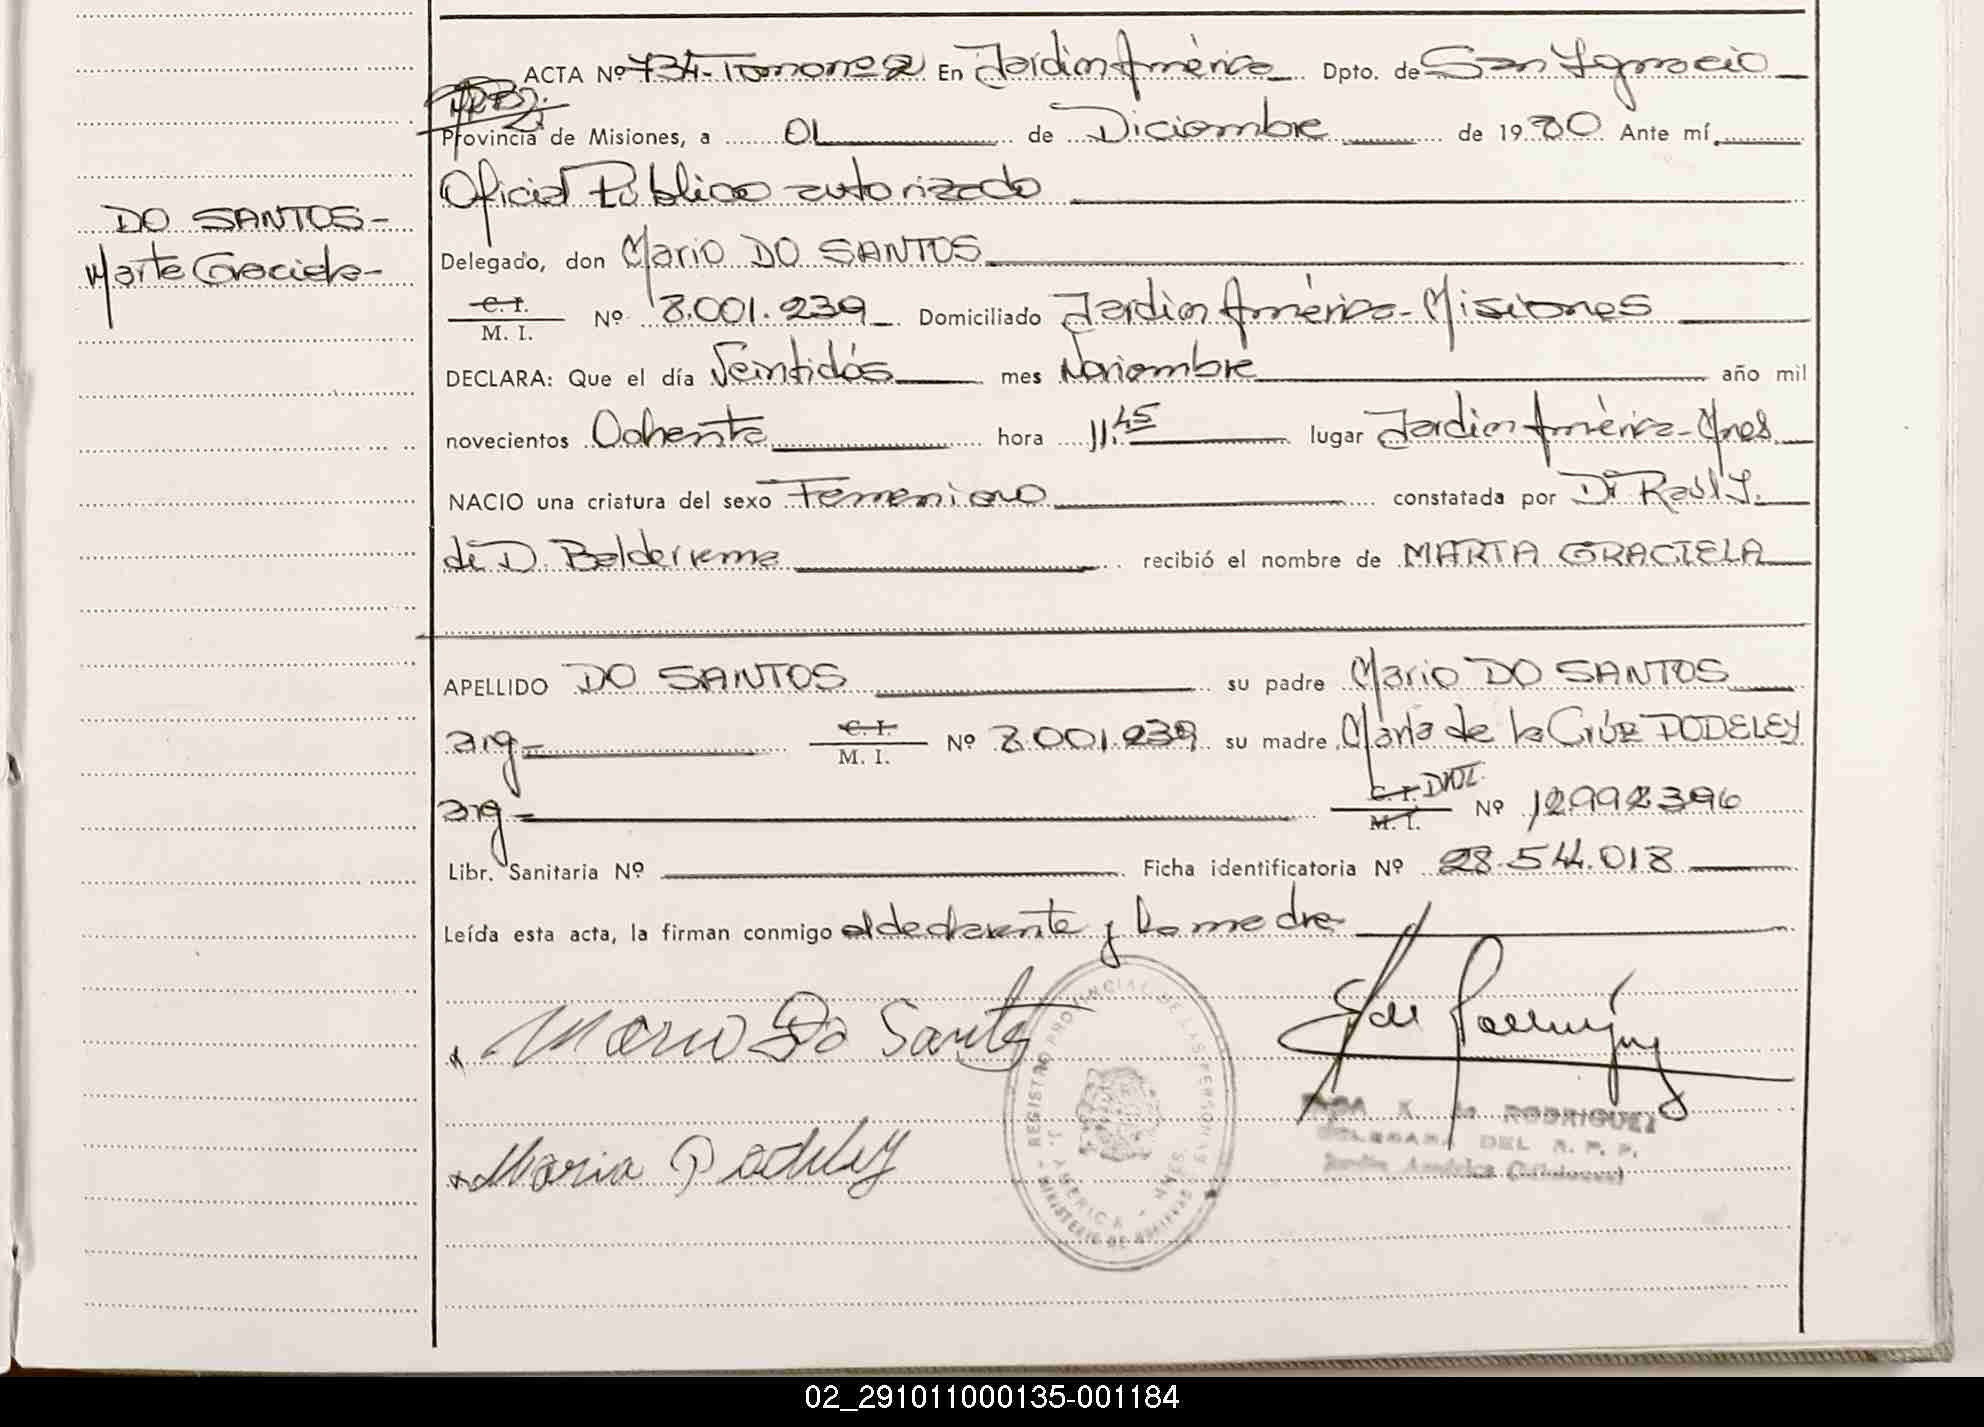 ACTA Nº 734- Tomo nº 2 En Jardín América Dpto. de San Ignacio
Provincia de Misiones, a 01 de Diciembre de 1980 Ante mí,
Oficial Público autorizado
DO SANTOS-
Marta Graciela-
Delegado, don Mario DO SANTOS
C. I.
M. I. Nº 8.001.239 Domiciliado Jardín América-Misiones
DECLARA: Que el día Veintidós mes Noviembre año mil
novecientos Ochenta hora 11.45 lugar Jardín América-Mnes
NACIO una criatura del sexo Femenino constatada por Dr Raúl J.
de D. Balderrama recibió el nombre de MARTA GRACIELA
APELLIDO DO SANTOS su padre Mario DO SANTOS
arg- C. I. M. I. Nº 8.001.239 su madre María de la Cruz PODELEY
arg- C. I. DNI. M. I. Nº 12992396
Libr. Sanitaria Nº Ficha identificatoria Nº 28.544.018
Leída esta acta, la firman conmigo el declarante y la madre
Mario Do Santos
Maria Podeley
REGISTRO PROVINCIAL DE LAS PERSONAS
J. AMERICA - MNES.
MINISTERIO DE
K. de RODRIGUEZ
DELEGADA DEL R. P. P.
Jardín América (Misiones)
02_291011000135-001184